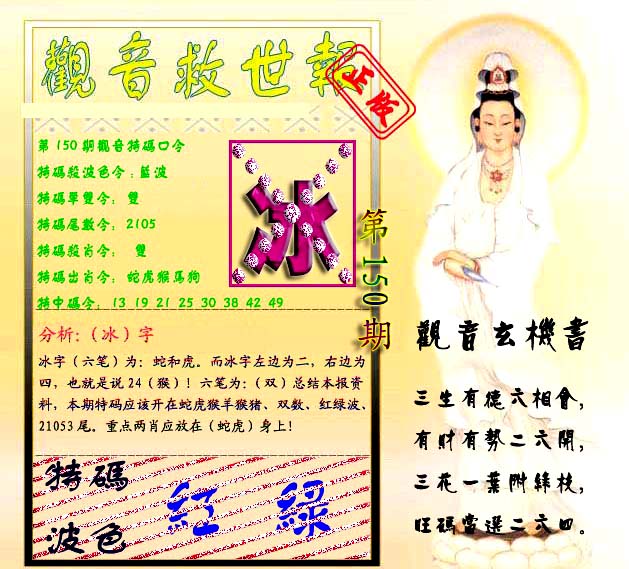 觀音救世報
正版
第150期觀音特碼口令
特碼殺波色令:藍波
特碼單雙令: 雙
特碼尾數令: 2105
特碼殺肖令: 雙
特碼出肖令: 蛇虎猴馬狗
特中碼令: 13 19 21 25 30 38 42 49
冰
第150期
分析:(冰)字
冰字(六笔)为:蛇和虎。而冰字左边为二,右边为
四,也就是说24(猴)!六笔为:(双)总结本报资
料,本期特码应该开在蛇虎猴羊猴猪、双数、红绿波、
21053尾。重点两肖应放在(蛇虎)身上!
特碼
波色
紅 綠
觀音玄機書
三生有德六相會,
有財有勢二六開,
三花一葉附綠枝,
旺碼當選二六四。